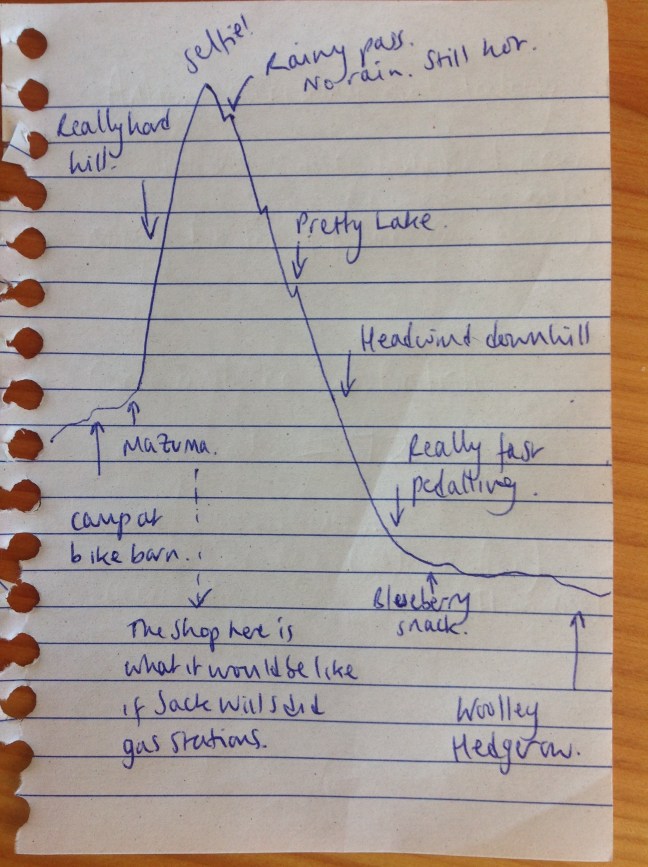 Selfie!
Rainy pass.
No rain. Still hot.
Really hard
hill.
Pretty Lake.
Headwind downhill
Really fast
pedalling.
Mazuma.
camp at
bike barn.
Blueberry
snack.
The shop here is
what it would be like
if Jack Wills did
gas stations.
Woolley
Hedgerow.